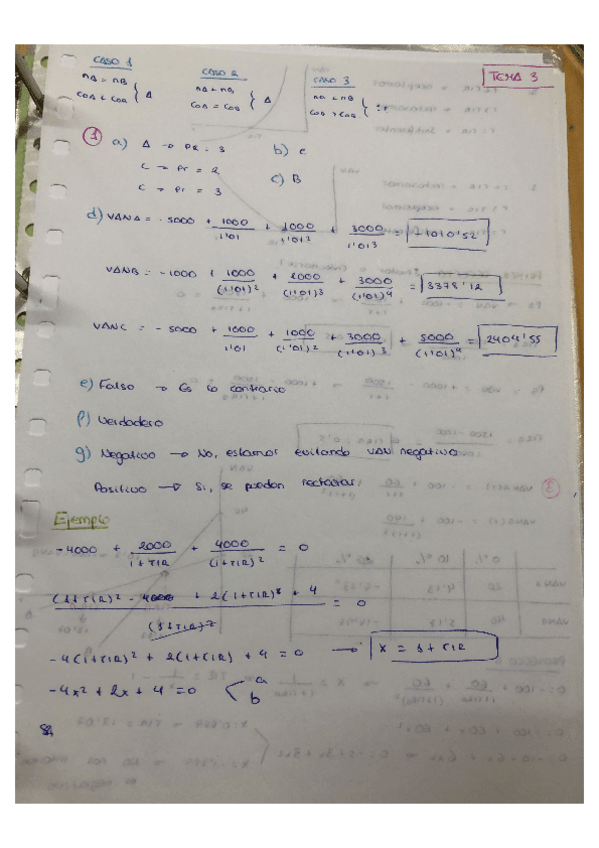 TEMA 3
CASO 1
nA = nB
COA < COB } A
CASO 2
nA < nB
COA = COB } A
CASO 3
nA < nB
COA > COB } ¿?
1 a) A → PR = 3
C → Pr = 2
C → Pr = 3
b) C
c) B
d) VANA = -5000 + 1000/1'01 + 1000/1'01² + 3000/1'01³ = -1010'52
VANB = -1000 + 1000/(1'01)² + 2000/(1'01)³ + 3000/(1'01)⁴ = 3378'12
VANC = -5000 + 1000/1'01 + 1000/(1'01)² + 3000/(1'01)³ + 5000/(1'01)⁴ = 2404'55
e) Falso → Es lo contrario
f) Verdadero
g) Negativo → No, estamos evitando VAN negativo
Positivo → Si, se pueden
Ejemplo
-4000 + 2000/(1+TIR) + 4000/(1+TIR)² = 0
= 0
-4(1+TIR)² + 2(1+TIR) + 4 = 0 → X = 1+TIR
-4x² + 2x + 4 = 0 < a
b